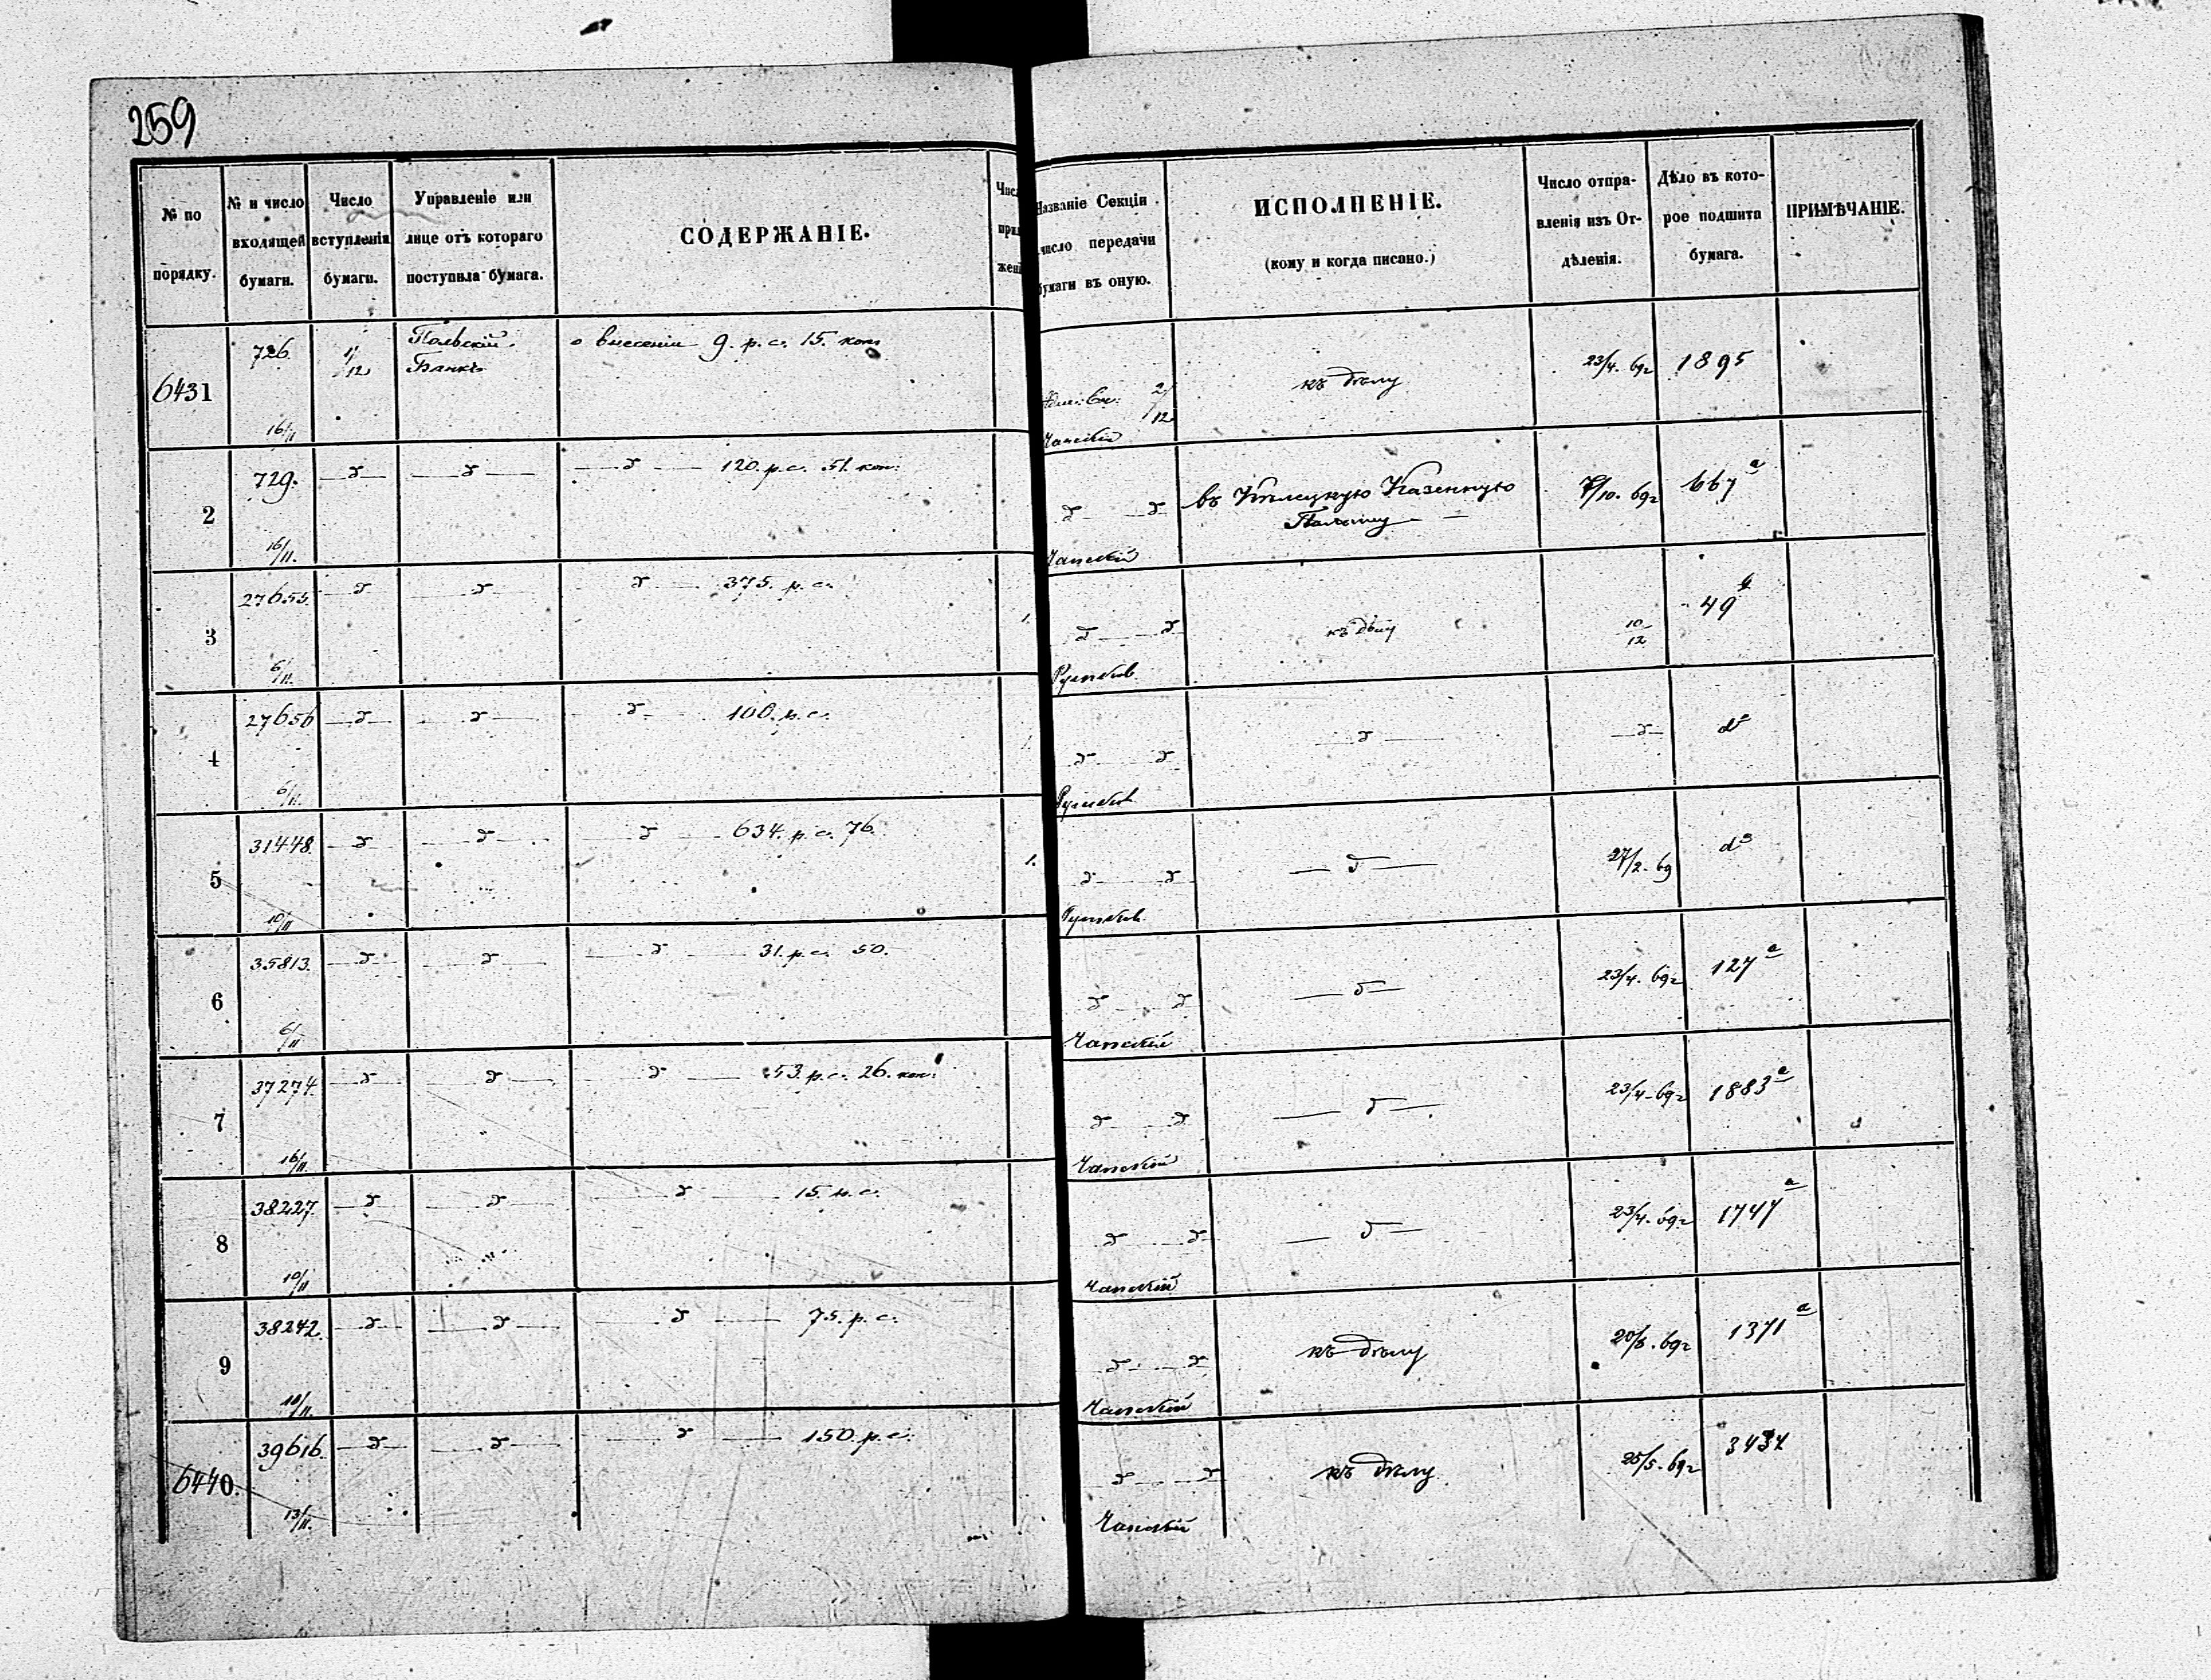 259
№ по порядку.
№ и число входящей бумаги.
Число вступленія бумаги.
Управленіе или лице отъ котораго поступила бумага.
СОДЕРЖАНІЕ.
Названіе Секціи
число передачи
бумаги въ оную.
ИСПОЛНЕНІЕ.
(кому и когда писано.)
Число отпра-
вленія изъ От-
дѣленія.
Дѣло въ кото-
рое подшита
бумага.
ПРИМѢЧАНІЕ.
6431 726. 16/11 1/12 Польскій Банкъ о внесеніи 9. р. с. 15. коп 2/12 Чапскій къ дѣлу 23/4. 69г 1895
2 729. 16/11. 120. р. с. 51. коп. Чапскій въ Кѣлецкую Казенную Палату 7/10. 69г 667 а
3 27655. 6/11. 375. р. с. 1. къ дѣлу 10/12 49
4 27656 6/11. 100. р. с. 1.
5 31448. 10/11 634. р. с. 76. 1. 27/2. 69
6 35813. 6/11 31. р. с. 50. Чапскій 23/4. 69г 127 а
7 37274. 16/11. 53. р. с. 26. коп. Чапскій 23/4. 69г 1883 а
8 38227. 10/11 15. р. с. Чапскій 23/4. 69г 1747 а
9 38242. 10/11. 75. р. с. Чапскій къ дѣлу 69г 1371 а
6440. 39616. 13/11. 150. р. с. Чапскій къ дѣлу 25/5. 69г 3434